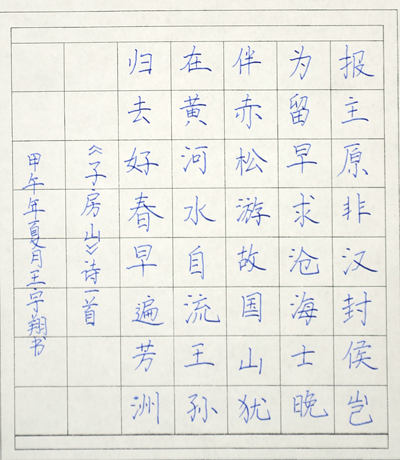 报主原非汉封侯岂
为留早求沧海士晚
伴赤松游故国山犹
在黄河水自流王孙
归去好春早遍芳洲
《子房山》诗一首
甲午年夏月王宇翔书